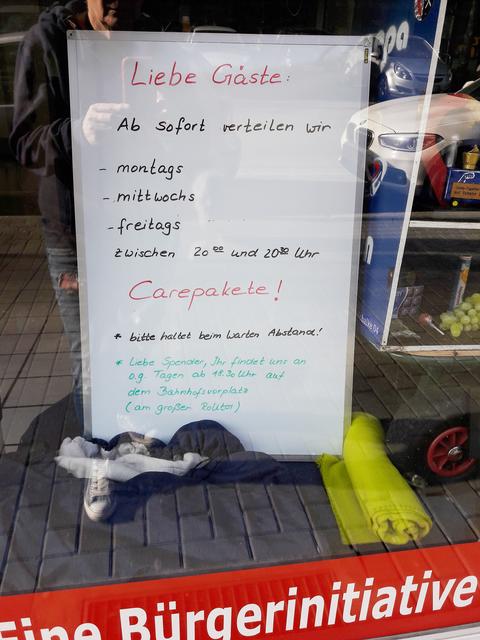 Liebe Gäste:
Ab sofort verteilen wir
- montags
- mittwochs
- freitags
zwischen 20 00 und 20 30 Uhr
Carepakete!
* bitte haltet beim Warten Abstand!
* Liebe Spender, Ihr findet uns an
o.g. Tagen ab 18.30 Uhr auf
dem Bahnhofsvorplatz
(am großen Politor)
Eine Bürgerinitiative